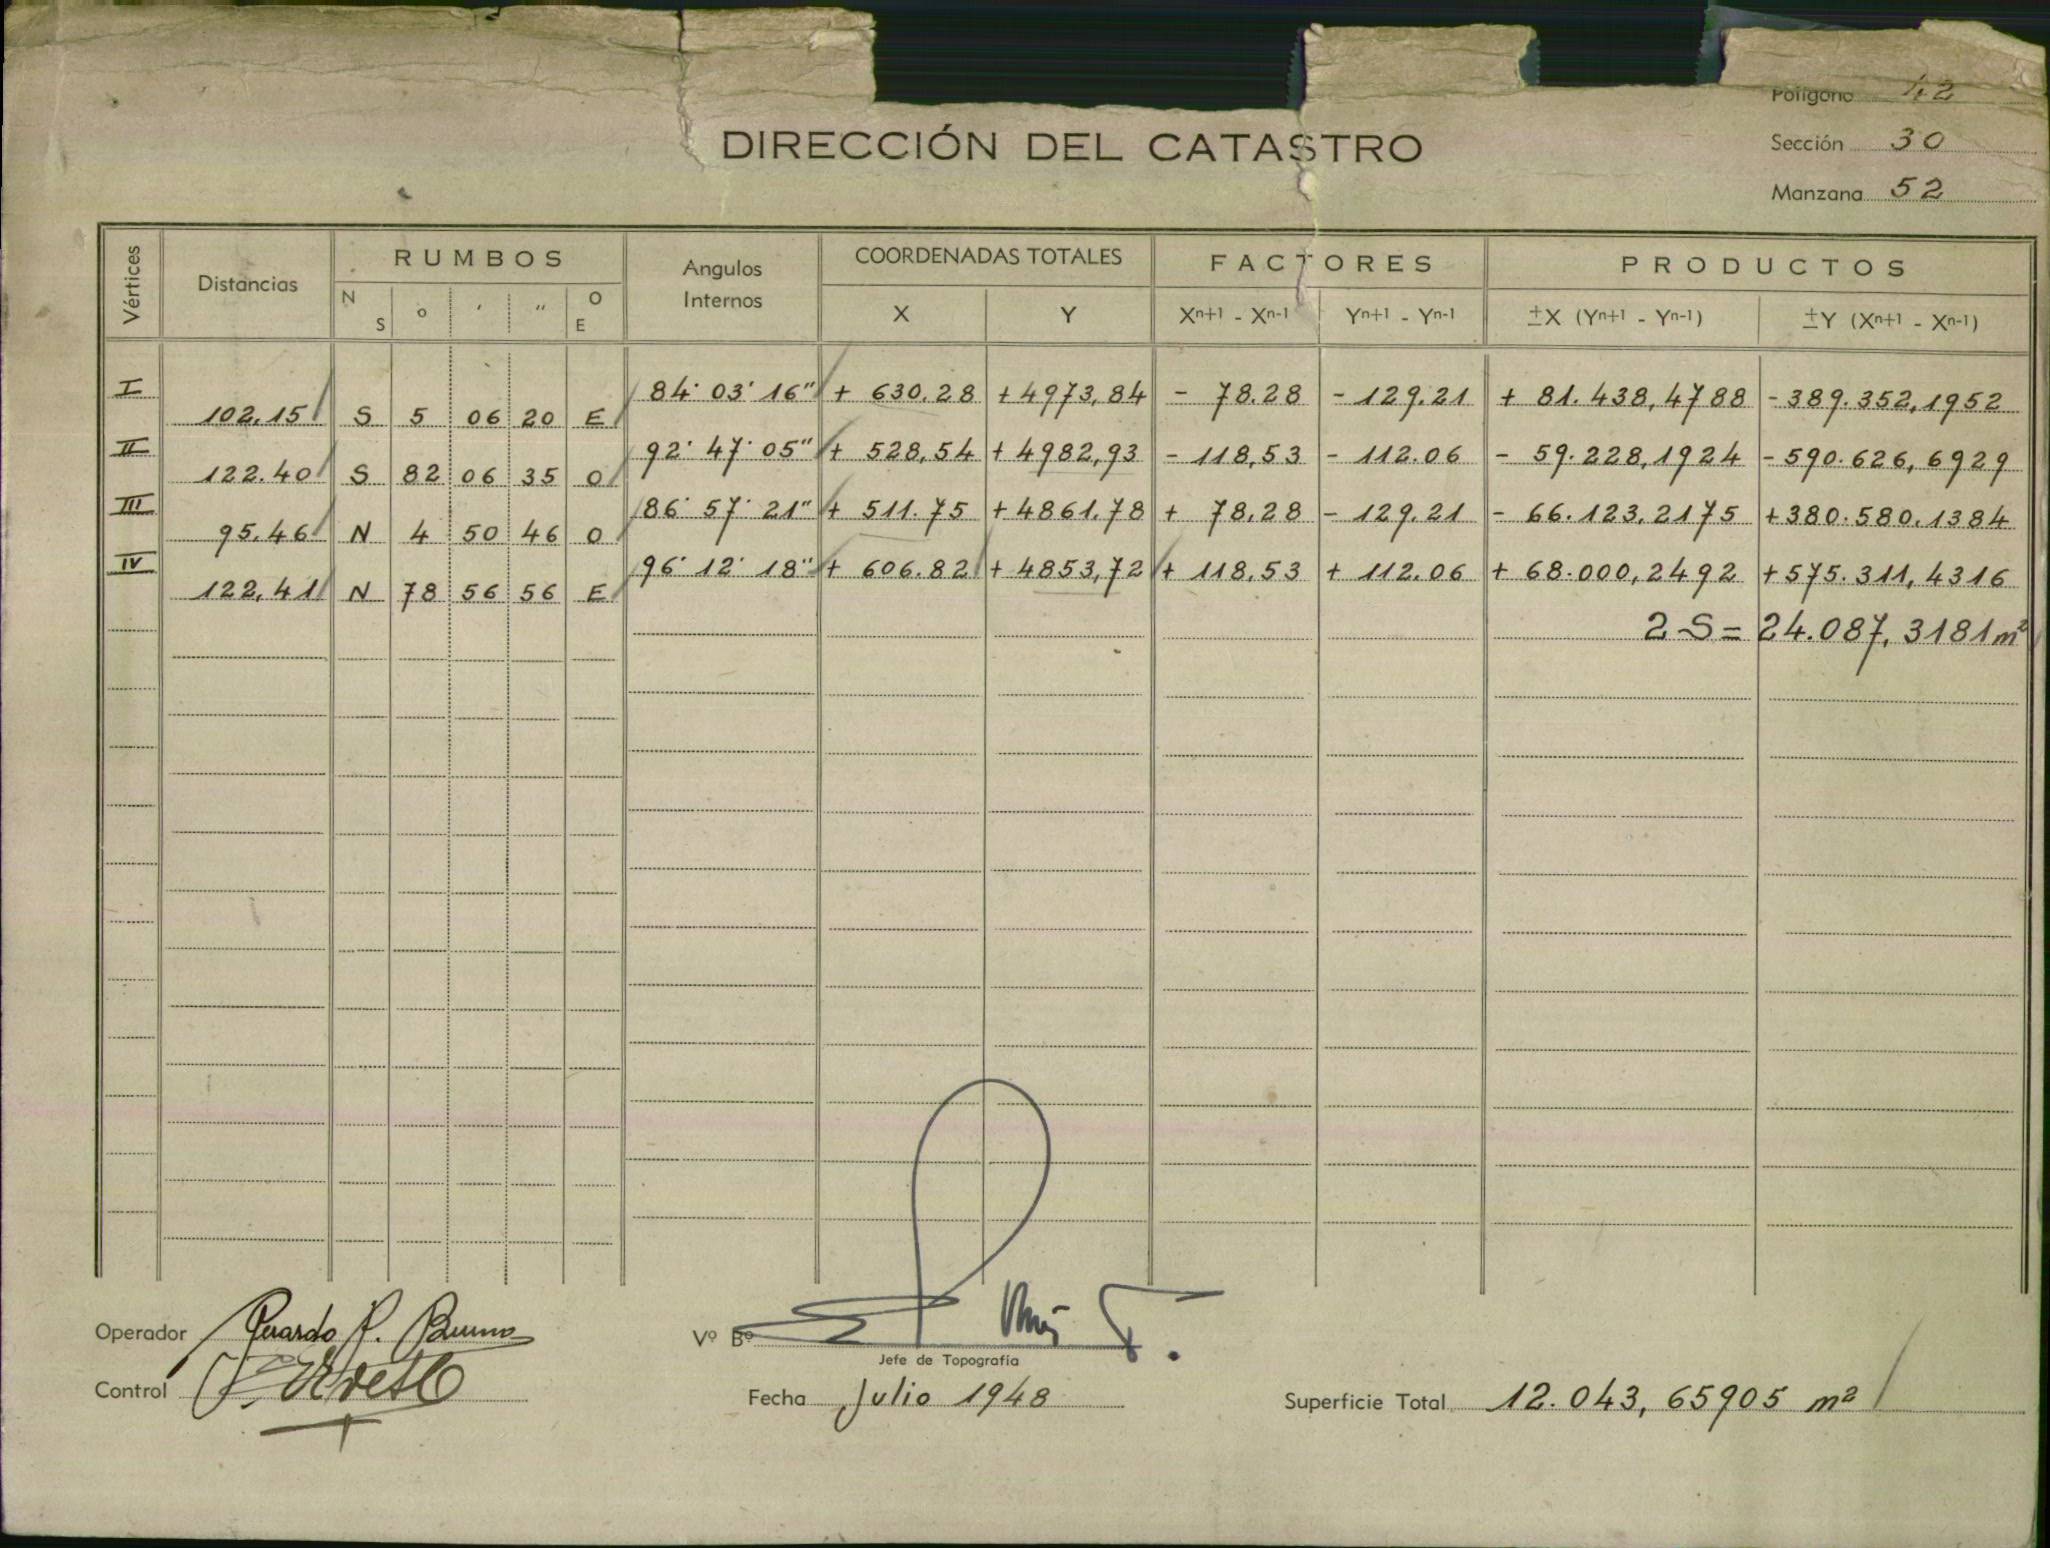 Polígono 42
DIRECCIÓN DEL CATASTRO
Sección 30
Manzana 52
Vértices Distancias RUMBOS Angulos Internos COORDENADAS TOTALES FACTORES PRODUCTOS
N S o ' " O E X Y Xn+1 - Xn-1 Yn+1 - Yn-1 ±X (Yn+1 - Yn-1) ±Y (Xn+1 - Xn-1)
I 84° 03' 16" + 630.28 +4973,84 - 78.28 - 129.21 + 81.438,4788 -389.352,1952
102,15 S 5 06 20 E
II 92° 47' 05" + 528,54 +4982,93 - 118,53 - 112.06 - 59.228,1924 -590.626,6929
122.40 S 82 06 35 O
III 86° 57' 21" + 511.75 +4861.78 + 78,28 - 129.21 - 66.123,2175 +380.580.1384
95.46 N 4 50 46 O
IV 96° 12' 18" + 606.82 +4853,72 + 118.53 + 112.06 + 68.000,2492 +575.311,4316
122,41 N 78 56 56 E
2 S = 24.087,3181 m²
Operador Gerardo P. Bueno
Vº Bº
Jefe de Topografía
Control
Fecha Julio 1948
Superficie Total 12.043,65905 m²